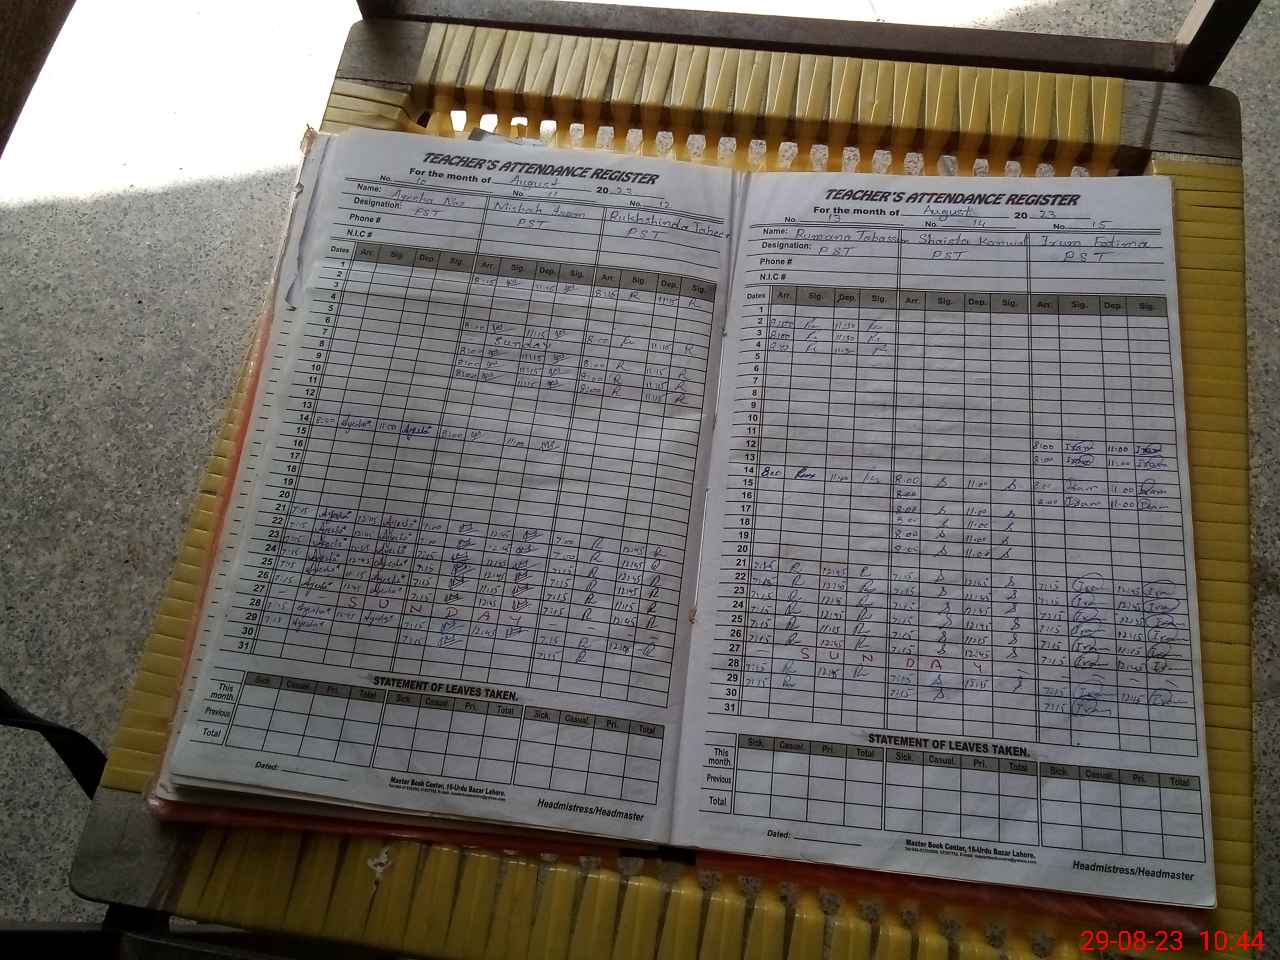 TEACHER'S ATTENDANCE REGISTER
For the month of August 20 23
No. 10 No. 11 No. 12
Name: Ayesha Naz Misbah Rukhshinda
Designation: PST PST PST
Phone #
N.I.C #
Dates Arr. Sig. Dep. Sig. Arr. Sig. Dep. Sig. Arr. Sig. Dep. Sig.
1
2
3 8:15 11:15 8:15 R 11:15 R
4
5
6
7 8:00 11:15 8:00 R 11:15 R
8 SUNDAY
9 8:00 11:15 8:00 R 11:15 R
10 8:00 11:15 8:00 R 11:15 R
11 8:00 11:15 8:00 R 11:15 R
12
13
14 8:00 Ayesha 11:00 Ayesha 8:00 11:00
15
16
17
18
19
20
21 7:15 Ayesha 12:45 Ayesha 7:00 12:45 7:00 R 12:45 R
22 7:15 Ayesha 12:45 Ayesha 7:00 12:45 7:00 R 12:45 R
23 7:15 Ayesha 12:45 Ayesha 7:15 12:45 7:15 R 12:45 R
24 7:15 Ayesha 12:45 Ayesha 7:15 12:45 7:15 R 12:45 R
25 7:15 Ayesha 11:15 Ayesha 7:15 11:15 7:15 R 11:15 R
26 7:15 Ayesha 12:45 Ayesha 7:15 12:45 7:15 R 12:45 R
27 SUNDAY
28 7:15 Ayesha 12:45 Ayesha 7:15 12:45 7:15 R 12:45 R
29 7:15 Ayesha 7:15 7:15 R
30
31
STATEMENT OF LEAVES TAKEN.
Sick. Casual. Pri. Total Sick. Casual. Pri. Total Sick. Casual. Pri. Total
This month.
Previous
Total
Dated:
Master Book Center, 16-Urdu Bazar Lahore.
Headmistress/Headmaster
TEACHER'S ATTENDANCE REGISTER
For the month of August 20 23
No. 13 No. 14 No. 15
Name: Rumana Tabassum Shaista Kanwal Irum Fatima
Designation: PST PST PST
Phone #
N.I.C #
Dates Arr. Sig. Dep. Sig. Arr. Sig. Dep. Sig. Arr. Sig. Dep. Sig.
1
2 8:00 11:30
3 8:00 11:30
4 8:00 11:30
5
6
7
8
9
10
11
12 8:00 Iram 11:00 Iram
13 8:00 Iram 11:00 Iram
14 8:00 11:00 8:00 S 11:00 S
15 8:00 8:00 Iram 11:00 Iram
16 8:00 S 11:00 S 8:00 Iram 11:00 Iram
17 8:00 S 11:00 S
18 8:00 S 11:00 S
19 8:00 S 11:00 S
20
21 7:15 R 12:45 R 7:15 S 12:45 S 7:15 Iram 12:45 Iram
22 7:15 R 12:45 R 7:15 S 12:45 S 7:15 Iram 12:45 Iram
23 7:15 R 12:45 R 7:15 S 12:45 S 7:15 Iram 12:45 Iram
24 7:15 R 12:45 R 7:15 S 12:45 S 7:15 Iram 12:45 Iram
25 7:15 R 11:15 R 7:15 S 11:15 S 7:15 Iram 11:15 Iram
26 7:15 R 12:45 R 7:15 S 12:45 S 7:15 Iram 12:45 Iram
27 SUNDAY
28 7:15 R 12:45 R 7:15 S 12:45 S 7:15 Iram 12:45 Iram
29 7:15 R 7:15 S 7:15 Iram
30
31
STATEMENT OF LEAVES TAKEN.
Sick. Casual. Pri. Total Sick. Casual. Pri. Total Sick. Casual. Pri. Total
This month.
Previous
Total
Dated:
Master Book Center, 16-Urdu Bazar Lahore.
Headmistress/Headmaster
29-08-23 10:44